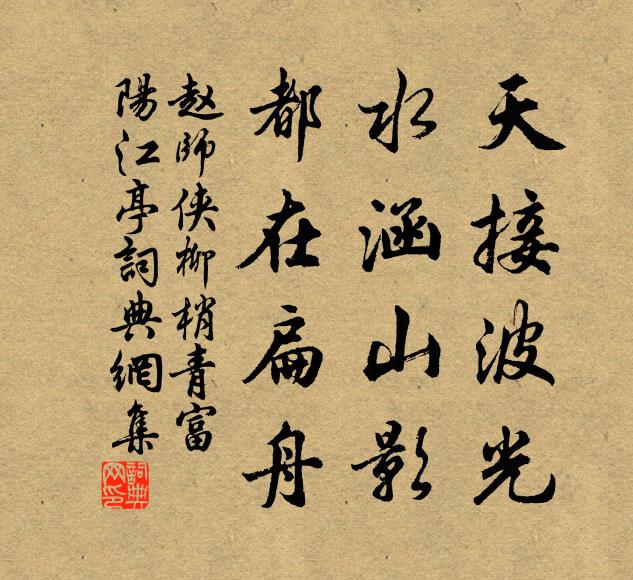 天接波光
水涵山影
都在扁舟
赵師侠柳梢青富
陽江亭詞典網集
詞典网印